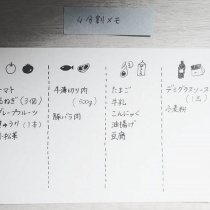 4分割メモ
トマト
玉ねぎ（3個）
グレープフルーツ
きゅうり（1本）
小松菜
牛薄切り肉
（600g）
豚バラ肉
たまご
牛乳
こんにゃく
油揚げ
豆腐
デミグラスソース
（1缶）
小麦粉